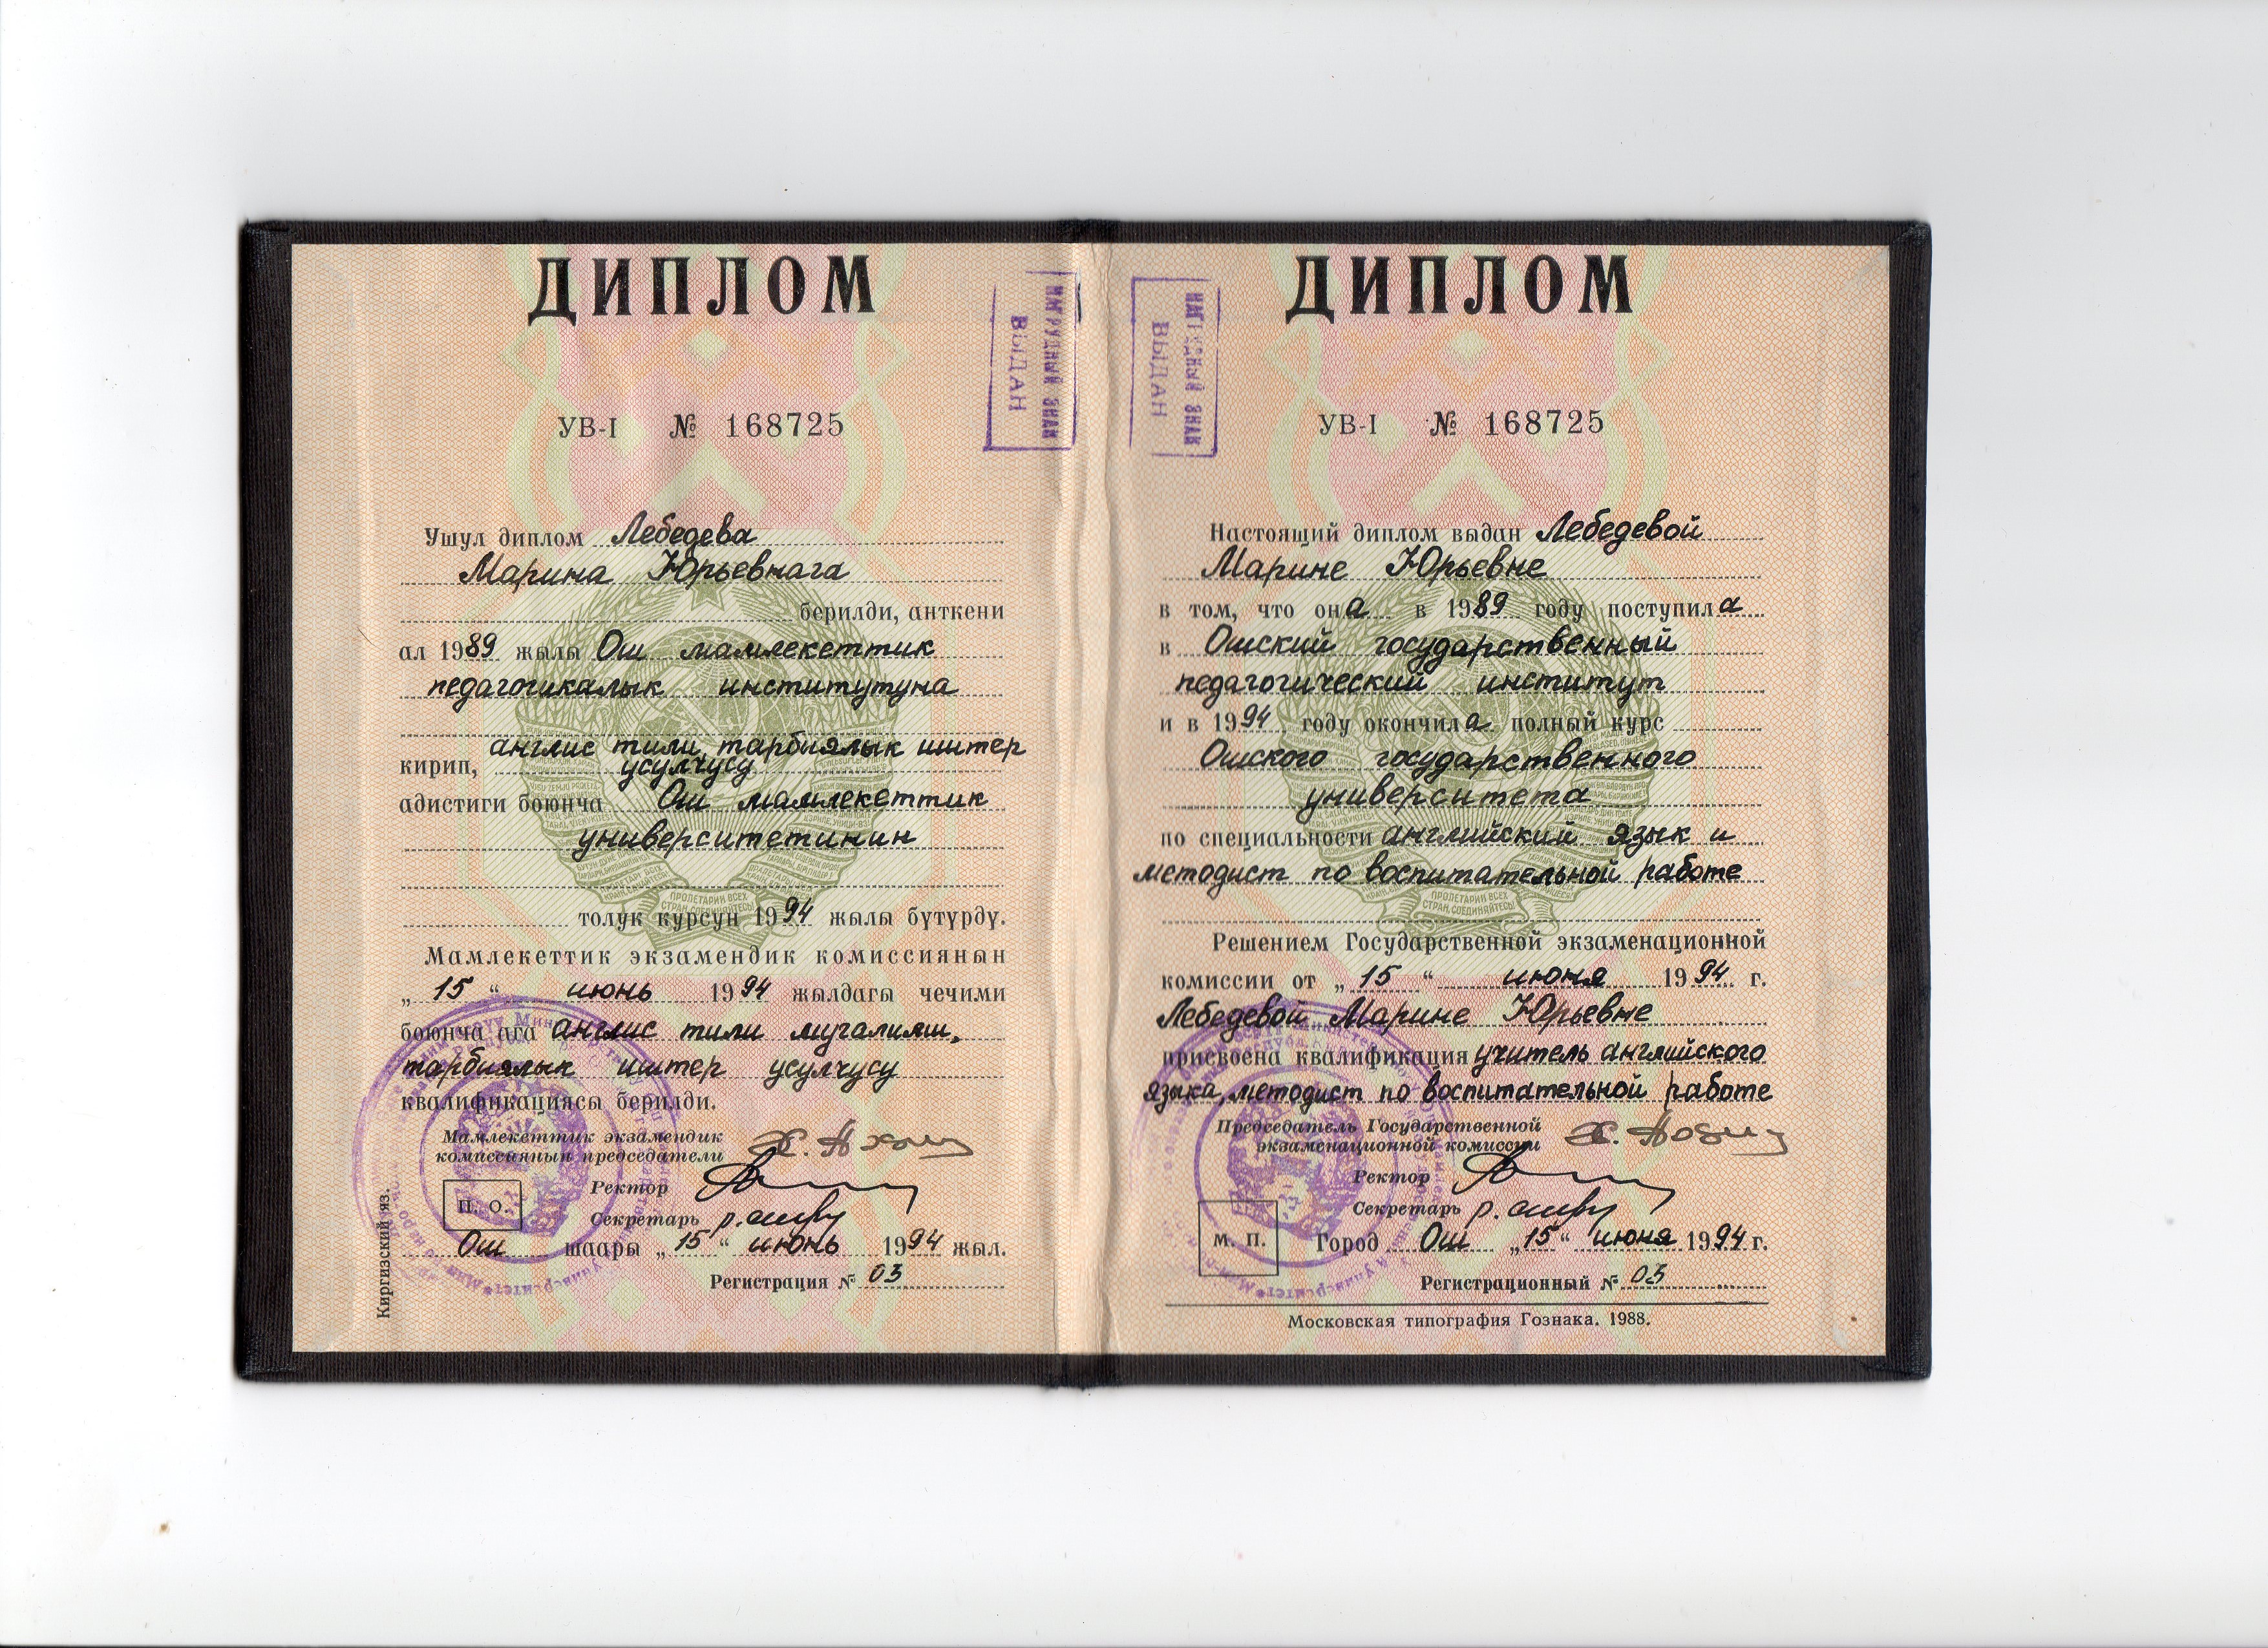 ДИПЛОМ
НАГРУДНЫЙ ЗНАК
ВЫДАН
УВ-I № 168725
Ушул диплом Лебедева
Марина Юрьевнага
берилди, анткени
ал 1989 жылы Ош мамлекеттик
педагогикалык институтуна
англис тили, тарбиялык иштер
кирип, усулчусу
адистиги боюнча Ош мамлекеттик
университетинин
толук курсун 1994 жылы бүтүрдү.
Мамлекеттик экзамендик комиссиянын
„15“ июнь 1994 жылдагы чечими
боюнча ага англис тили мугалими,
тарбиялык иштер усулчусу
квалификациясы берилди.
Мамлекеттик экзамендик
комиссиянын председатели
Ректор
П. О.
Секретарь
Ош шаары „15“ июнь 1994 жыл.
Регистрация № 03
Киргизский яз.
ДИПЛОМ
НАГРУДНЫЙ ЗНАК
ВЫДАН
УВ-I № 168725
Настоящий диплом выдан Лебедевой
Марине Юрьевне
в том, что она в 1989 году поступила
в Ошский государственный
педагогический институт
и в 1994 году окончила полный курс
Ошского государственного
университета
по специальности английский язык и
методист по воспитательной работе
Решением Государственной экзаменационной
комиссии от „15“ июня 1994 г.
Лебедевой Марине Юрьевне
присвоена квалификация учитель английского
языка, методист по воспитательной работе
Председатель Государственной
экзаменационной комиссии
Ректор
Секретарь
М. П.
Город Ош „15“ июня 1994 г.
Регистрационный № 03
Московская типография Гознака. 1988.
ПРОЛЕТАРИИ ВСЕХ
СТРАН, СОЕДИНЯЙТЕСЬ!